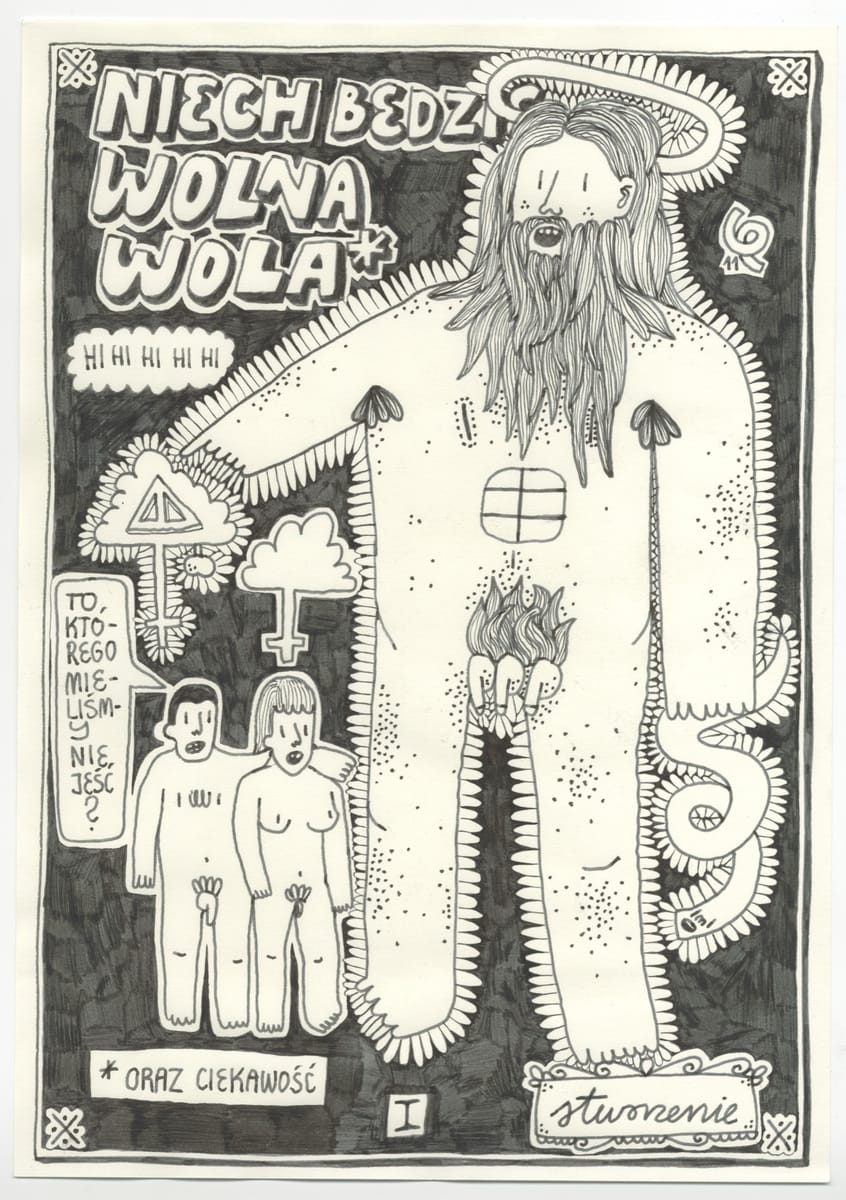 NIECH BĘDZIE
WOLNA
WOLA*
HI HI HI HI HI
11
TO,
KTÓ-
REGO
MIE-
LIŚM-
Y
NIE
JEŚĆ
?
* ORAZ CIEKAWOŚĆ
I
stworzenie